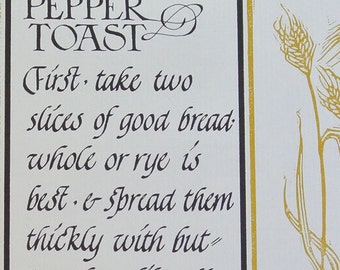 PEPPER
TOAST
First · take two
slices of good bread·
whole or rye is
best · & spread them
thickly with but=